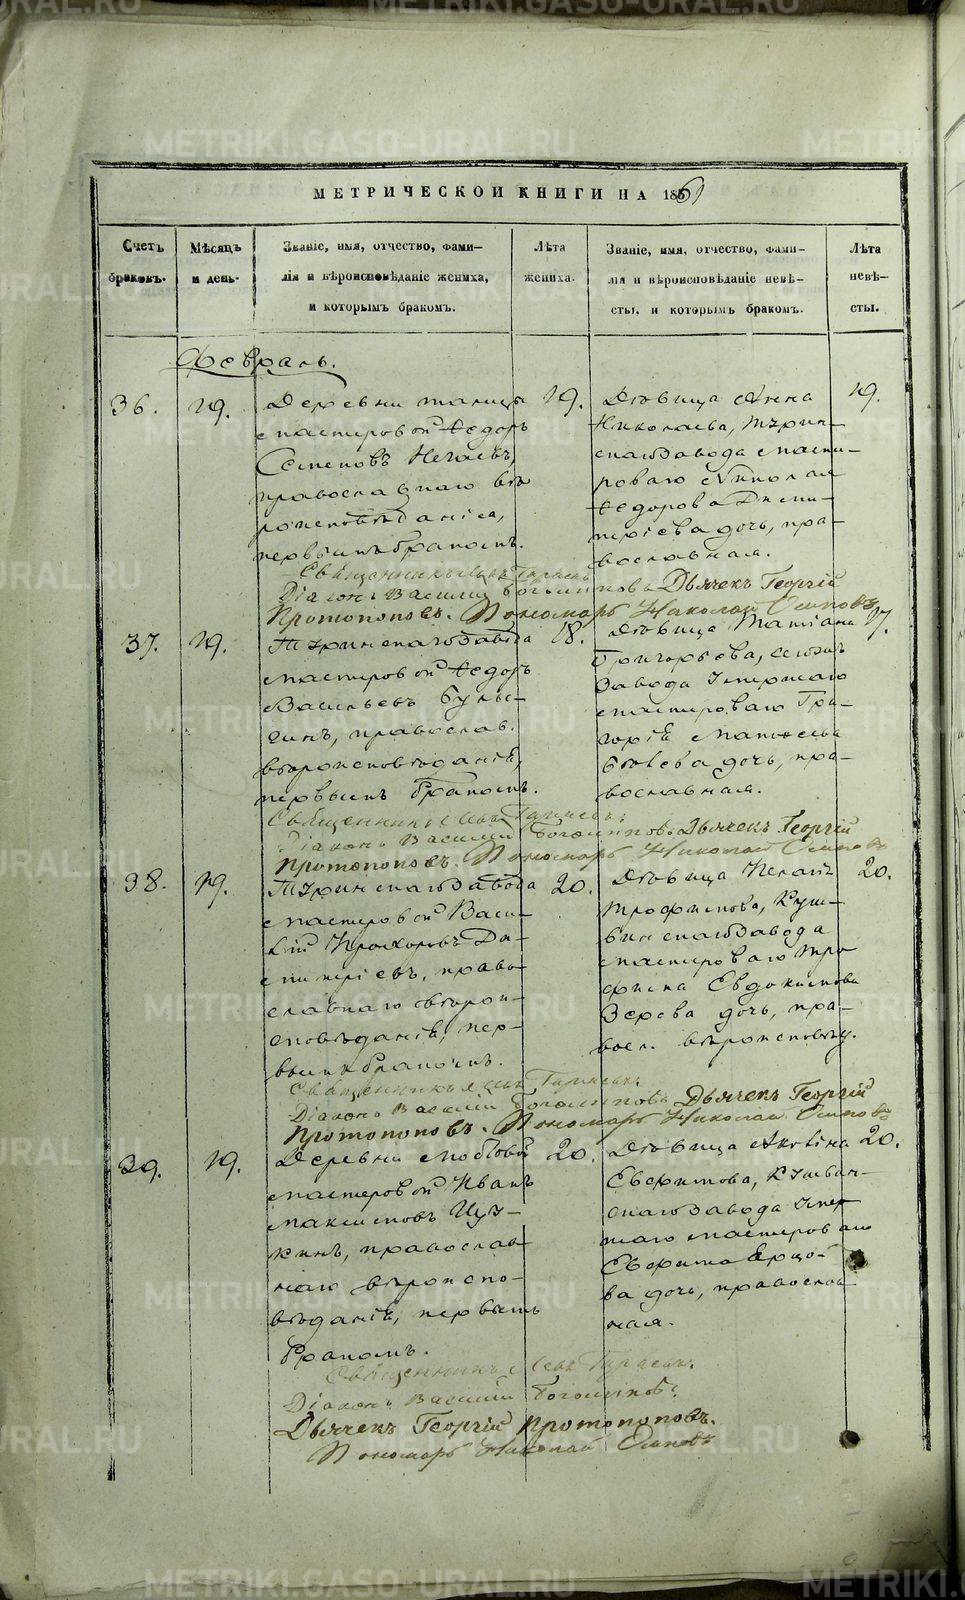 МЕТРИЧЕСКОЙ КНИГИ НА 1861
Счетъ браковъ.
Мѣсяцъ и день.
Званіе, имя, отчество, фами-
лія и вѣроисповѣданіе жениха,
и которымъ бракомъ.
Лѣта жениха.
Званіе, имя, отчество, фами-
лія и вѣроисповѣданіе невѣ-
сты, и которымъ бракомъ.
Лѣта невѣ-
сты.
Февраль.
36.
19.
Деревни
мастеровой Ѳедоръ
Семеновъ Нечаевъ,
православнаго вѣ
роисповѣданія,
первымъ бракомъ.
19.
Дѣвица Анна
Николаева, Турин-
скагозавода масте-
роваго Николая
Ѳедорова Дими-
тріева дочь, пра-
вославная.
19.
Священникъ
Діаконъ Василій Боголѣповъ Дьячекъ Георгій
Протопоповъ. Пономарь Николай Осиповъ
37.
19.
Туринскагозавода
мастеровой Ѳедоръ
Васильевъ Булы-
гинъ, православ.
вѣроисповѣданія,
первымъ бракомъ.
18.
Дѣвица Татіана
Григорьева,
завода умершаго
мастероваго Гри-
горія Матѳеева
дочь, пра-
вославная.
17.
Священникъ
Діаконъ Василій Боголѣповъ Дьячекъ Георгій
Протопоповъ. Пономарь Николай Осиповъ
38.
19.
Туринскагозавода
мастеровой Васи-
лій Прохоровъ Ди-
митріевъ, право-
славнаго вѣрои-
сповѣданія, пер-
вымъ бракомъ.
20.
Дѣвица Пелагія
Трофимова, Куш-
винскагозавода
мастероваго Тро
фима Евдокимова
Зерева дочь, пра-
восл. вѣроисповѣд.
20.
Священникъ
Діаконъ Василій Боголѣповъ Дьячекъ Георгій
Протопоповъ. Пономарь Николай Осиповъ
39.
19.
Деревни
мастеровой Иванъ
Максимовъ Щу-
кинъ, православ-
наго вѣроиспо-
вѣданія, первымъ
бракомъ.
20.
Дѣвица
Евфимова, Кушвин-
скагозавода умер
шаго мастероваго
Евфима
ва дочь, православ-
ная.
20.
Священникъ
Діаконъ Василій Боголѣповъ
Дьячекъ Георгій Протопоповъ.
Пономарь Николай Осиповъ
METRIKI.GASO-URAL.RU